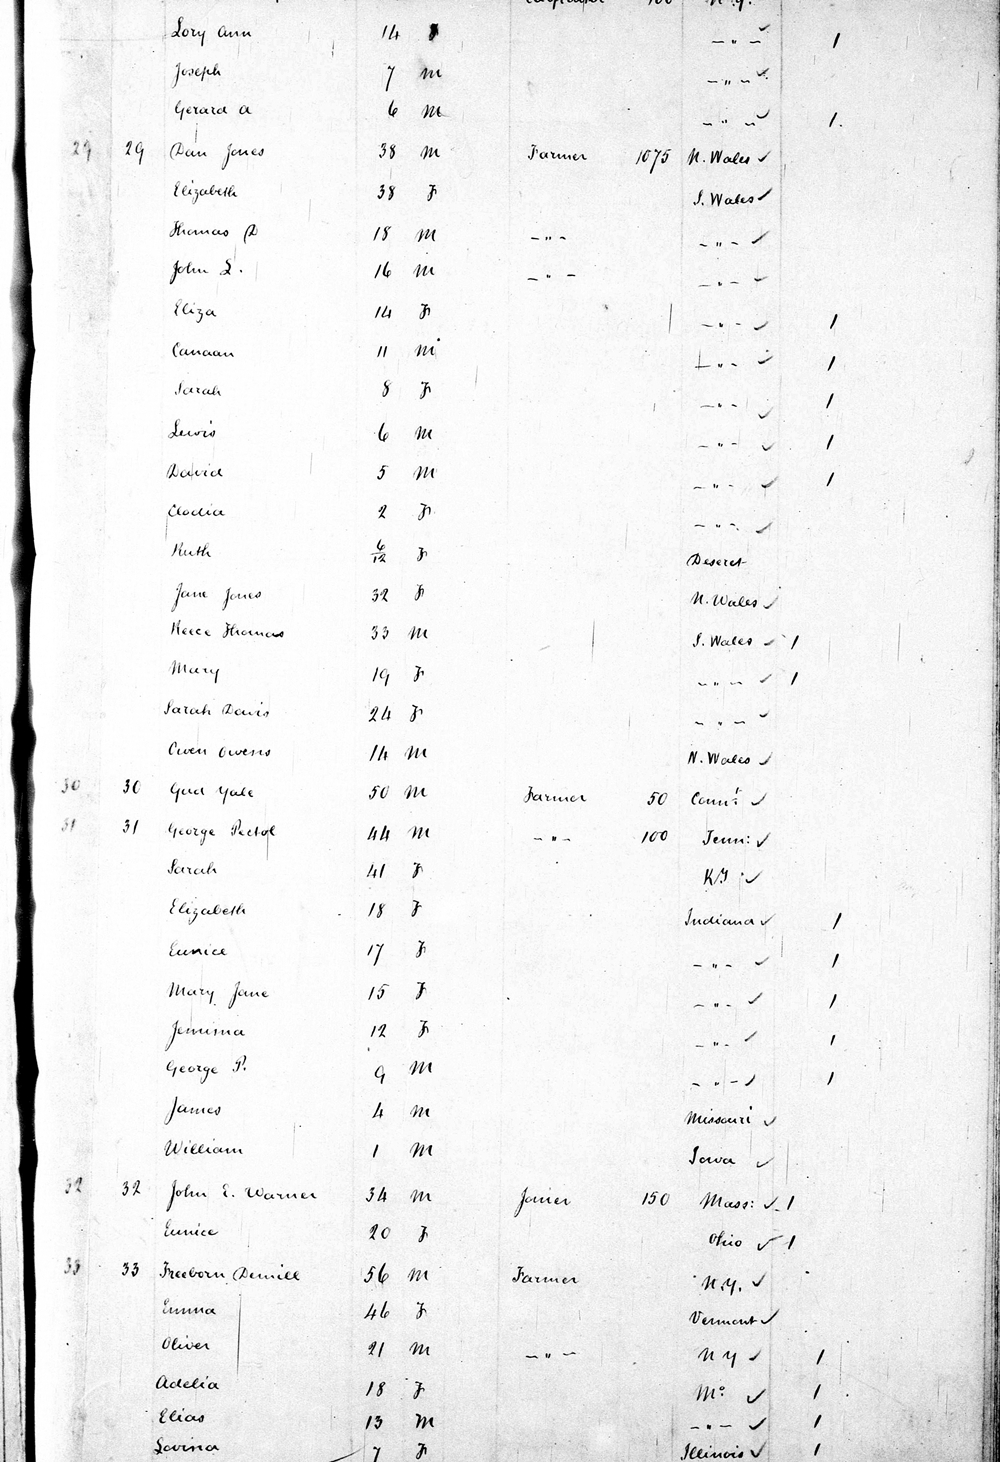 100 N.Y.
Lory Ann 14 F - " - ✓ 1
Joseph 7 M - " - ✓
Gerard A 6 M - " - ✓ 1.
29 29 Dan Jones 38 M Farmer 1075 N. Wales ✓
Elizabeth 38 F S. Wales ✓
Thomas D 18 M - " - - " - ✓
John L. 16 M - " - - " - ✓
Eliza 14 F - " - ✓ 1
Canaan 11 M - " - ✓ 1
Sarah 8 F - " - ✓ 1
Lewis 6 M - " - ✓ 1
David 5 M - " - ✓ 1
Clodia 2 F - " - ✓
Ruth 6/12 F Deseret
Jane Jones 32 F N. Wales ✓
Reece Thomas 33 M S. Wales ✓ 1
Mary 19 F - " - ✓ 1
Sarah Davis 24 F - " - ✓
Owen Owens 14 M N. Wales ✓
30 30 Gad Yale 50 M Farmer 50 Conn: ✓
31 31 George Pectol 44 M - " - 100 Tenn: ✓
Sarah 41 F KY ✓
Elizabeth 18 F Indiana ✓ 1
Eunice 17 F - " - ✓ 1
Mary Jane 15 F - " - ✓ 1
Jemima 12 F - " - ✓ 1
George P. 9 M - " - ✓ 1
James 4 M Missouri ✓
William 1 M Iowa ✓
32 32 John E. Warner 34 M Joiner 150 Mass: ✓ 1
Eunice 20 F Ohio ✓ 1
33 33 Freeborn Demill 56 M Farmer N.Y. ✓
Emma 46 F Vermont ✓
Oliver 21 M - " - N Y ✓ 1
Adelia 18 F Mo ✓ 1
Elias 13 M - " - ✓ 1
Lovina 7 F Illinois ✓ 1